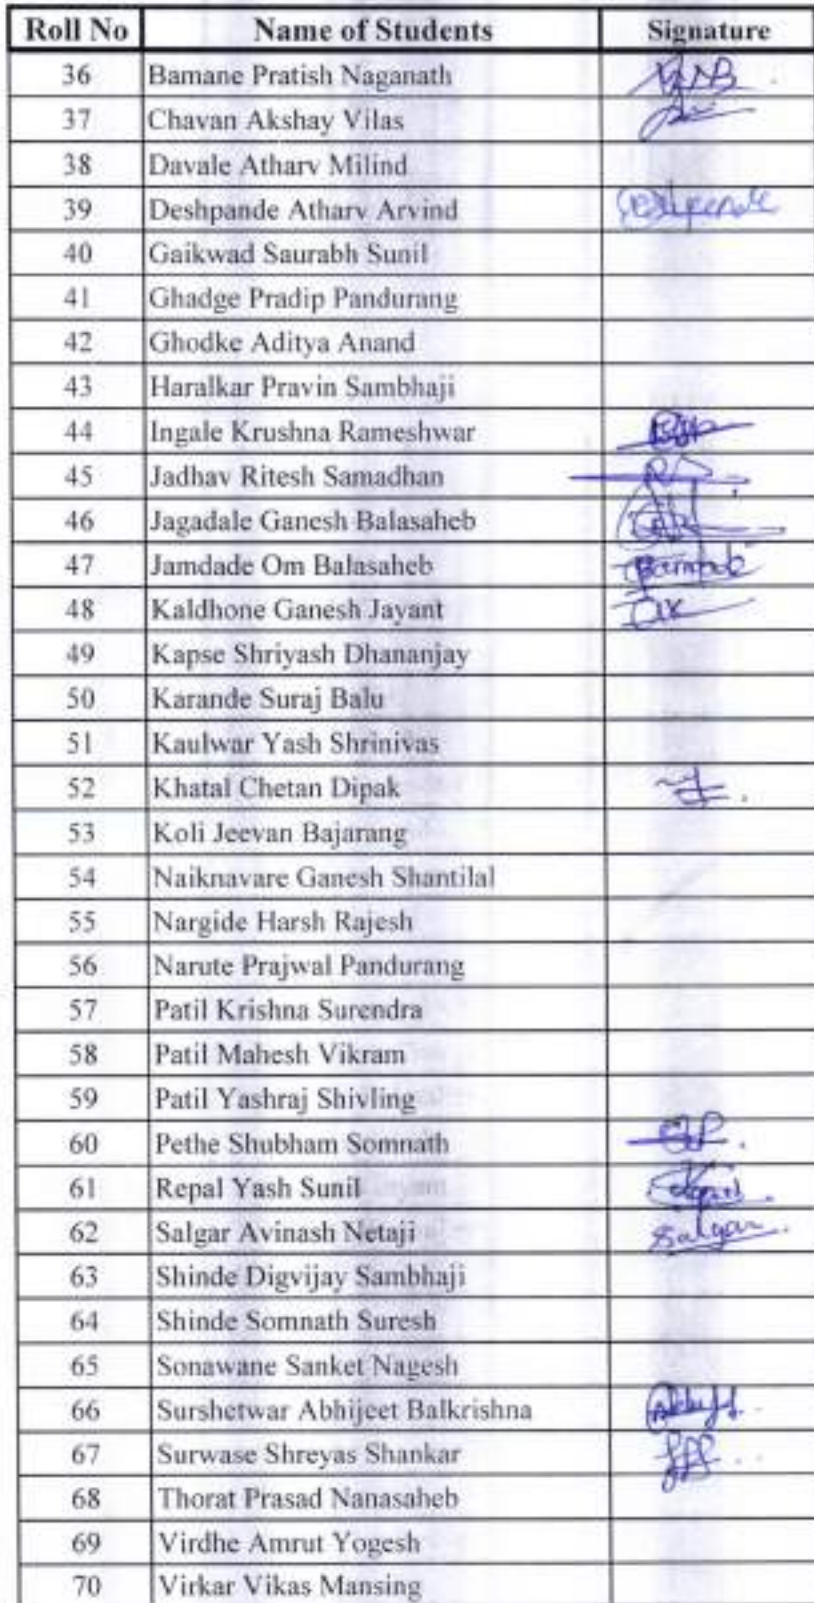 Roll No Name of Students Signature
36 Bamane Pratish Naganath
37 Chavan Akshay Vilas
38 Davale Atharv Milind
39 Deshpande Atharv Arvind Deshpande
40 Gaikwad Saurabh Sunil
41 Ghadge Pradip Pandurang
42 Ghodke Aditya Anand
43 Haralkar Pravin Sambhaji
44 Ingale Krushna Rameshwar
45 Jadhav Ritesh Samadhan
46 Jagadale Ganesh Balasaheb
47 Jamdade Om Balasaheb
48 Kaldhone Ganesh Jayant
49 Kapse Shriyash Dhananjay
50 Karande Suraj Balu
51 Kaulwar Yash Shrinivas
52 Khatal Chetan Dipak
53 Koli Jeevan Bajarang
54 Naiknavare Ganesh Shantilal
55 Nargide Harsh Rajesh
56 Narute Prajwal Pandurang
57 Patil Krishna Surendra
58 Patil Mahesh Vikram
59 Patil Yashraj Shivling
60 Pethe Shubham Somnath
61 Repal Yash Sunil
62 Salgar Avinash Netaji Salgar
63 Shinde Digvijay Sambhaji
64 Shinde Somnath Suresh
65 Sonawane Sanket Nagesh
66 Surshetwar Abhijeet Balkrishna
67 Surwase Shreyas Shankar
68 Thorat Prasad Nanasaheb
69 Virdhe Amrut Yogesh
70 Virkar Vikas Mansing